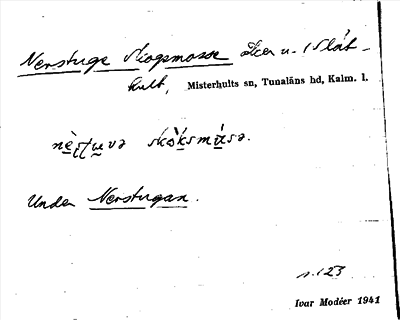 Nerstuge skogsmosse Åker u. Slät-
hult, Misterhults sn, Tunaläns hd, Kalm. l.
skòksmǻsə.
Under Nerstugan.
s. 123
Ivar Modéer 1941